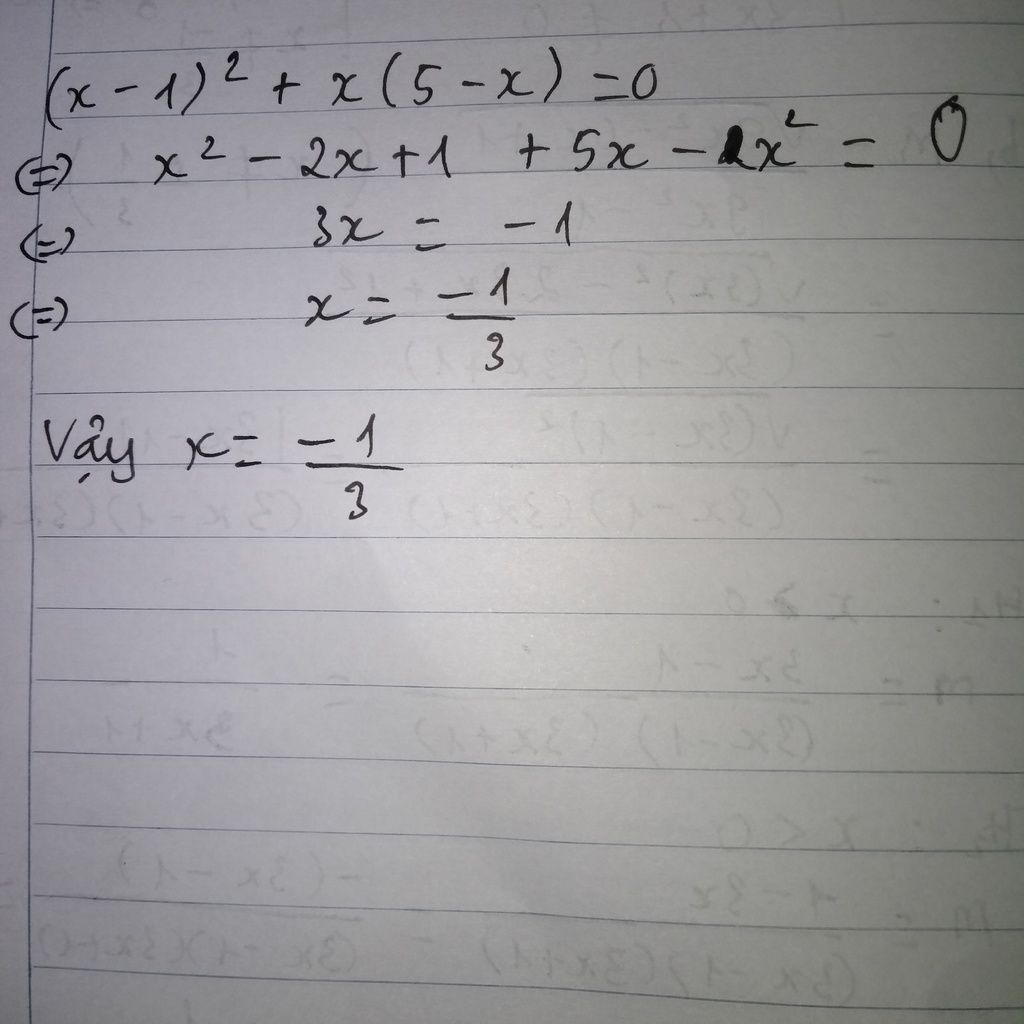 (x - 1)² + x(5 - x) = 0
(=) x² - 2x + 1 + 5x - x² = 0
(=) 3x = -1
(=) x = -1/3
Vậy x = -1/3